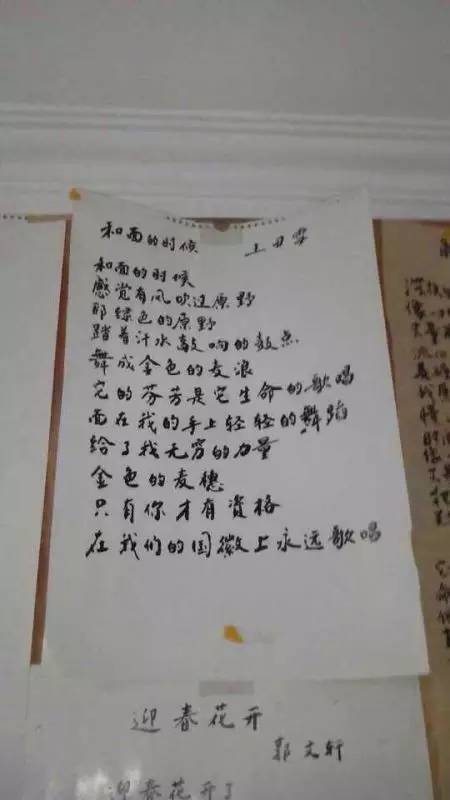 和面的时候 上日雯
和面的时候
感觉有风吹过原野
那绿色的原野
踏着汗水敲响的鼓点
舞成金色的麦浪
它的芬芳是它生命的歌唱
而在我的手上轻轻的舞蹈
给了我无穷的力量
金色的麦穗
只有你才有资格
在我们的国徽上永远歌唱
迎春花开
郭文轩
迎春花开了